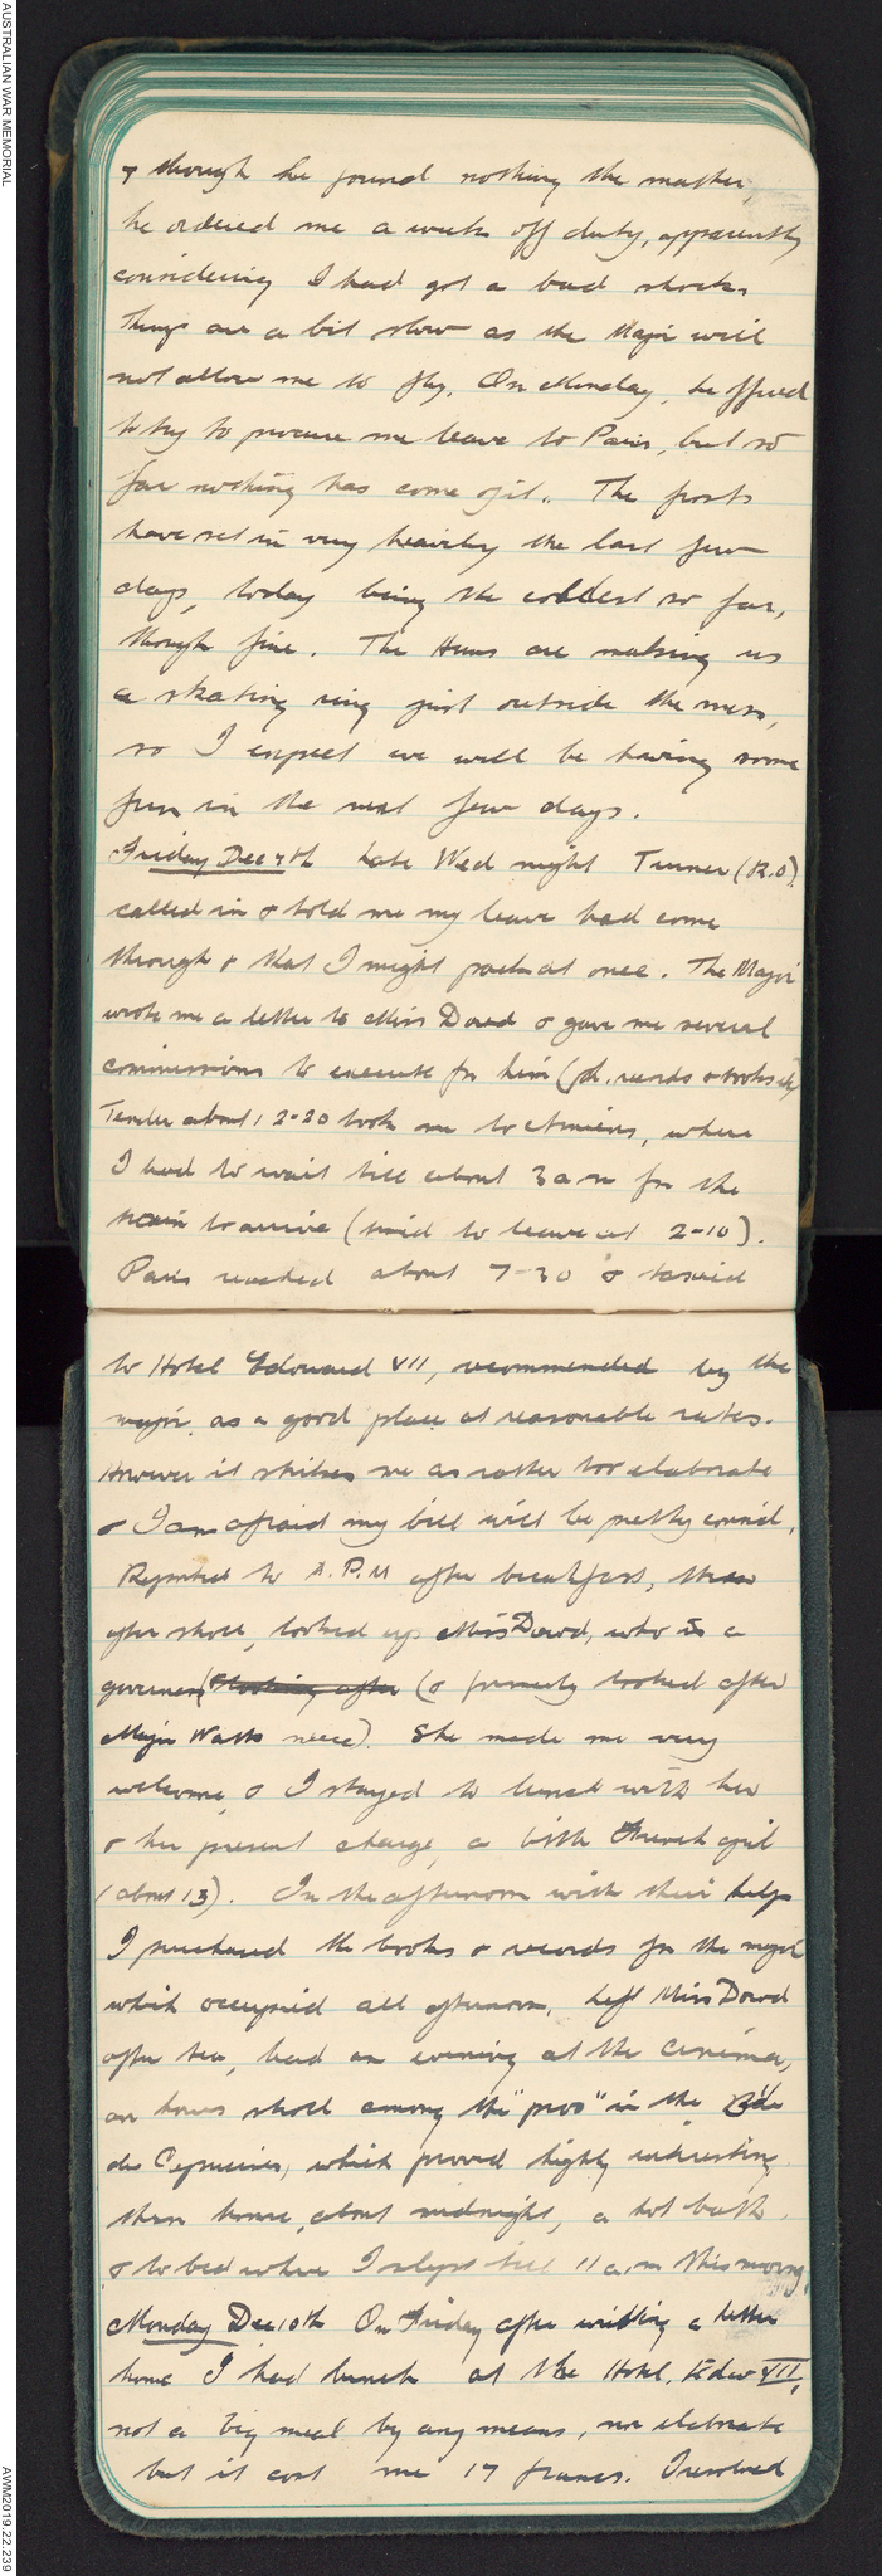 AUSTRALIAN WAR MEMORIAL
& though he found nothing the matter,
he ordered me a week off duty, apparently
considering I had got a bad shock.
Things are a bit slow as the Major will
not allow me to fly. On Monday, he offered
to try to procure me leave to Paris, but so
far nothing has come of it. The frosts
have set in very heavily the last few
days, today being the coldest so far,
though fine. The Huns are making us
a skating ring just outside the mess,
so I expect we will be having some
fun in the next few days.
Friday Dec 7th Late Wed night Turner (R.O)
called in & told me my leave had come
through & that I might pack at once. The Major
wrote me a letter to Miss Dowd & gave me several
commissions to execute for him (ph. records & books etc)
Tender about 12-20 took me to Amiens, where
I had to wait till about 3 am for the
train to arrive (said to leave at 2-10).
Paris reached about 7-30 & taxied
to Hotel Edouard VII, recommended by the
major, as a good place at reasonable rates.
However it strikes me as rather too elaborate
& I am afraid my bill will be pretty
Reported to A.P.M after breakfast, then
after stroll, looked up Miss Dowd, who is a
governess (& looking after (& formerly looked after
Major Watts niece). She made me very
welcome, & I stayed to lunch with her
& her present charge, a little French girl
(about 13). In the afternoon with their help
I purchased the books & records for the major
which occupied all afternoon. Left Miss Dowd
after tea, had an evening at the cinema,
an hours stroll among the "pros" in the Bd
des Capucines, which proved highly interesting
then home, about midnight, a hot bath
& to bed where I slept till 11 a.m this morng.
Monday Dec 10th On Friday after writting a letter
home I had lunch at the Hotel. Edw VII,
not a big meal by any means, nor elaborate
but it cost me 17 francs. I resolved
AWM2019.22.239